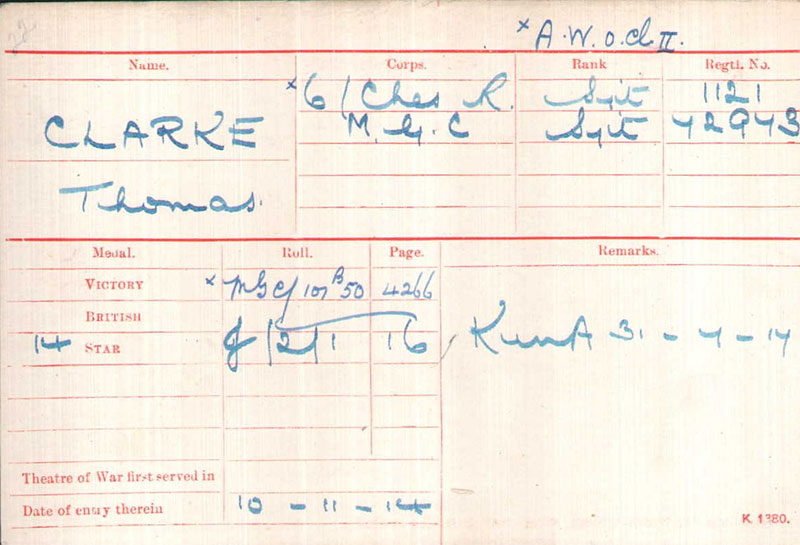 x A.W.O.Cl II.
Name. Corps. Rank Regtl. No.
x 6/Ches R. Sgt 1121
CLARKE M.G.C Sgt
Thomas.
Medal. Roll. Page. Remarks.
VICTORY x MGC/101 B50 4266
BRITISH
14 STAR 16 31-7-17
Theatre of War first served in
Date of entry therein 10-11-14
K 1380.